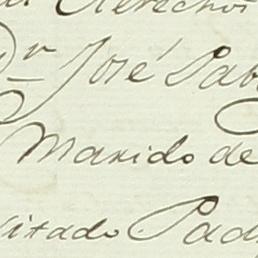 Derechos
Dr José Pab
Marido de
sitado Pad